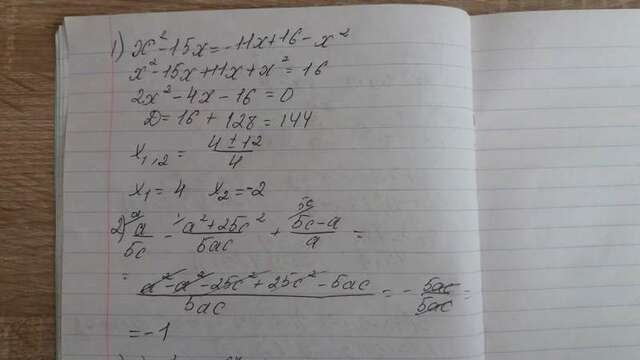 1) x² - 15x = -11x + 16 - x²
x² - 15x + 11x + x² = 16
2x² - 4x - 16 = 0
D = 16 + 128 = 144
x₁,₂ = (4 ± 12)/4
x₁ = 4 x₂ = -2
2) ᵃ⁾a/5c - ¹⁾(a² + 25c²)/5ac + ⁵ᶜ⁾(5c - a)/a =
= (a² - a² - 25c² + 25c² - 5ac)/5ac = - 5ac/5ac =
= -1